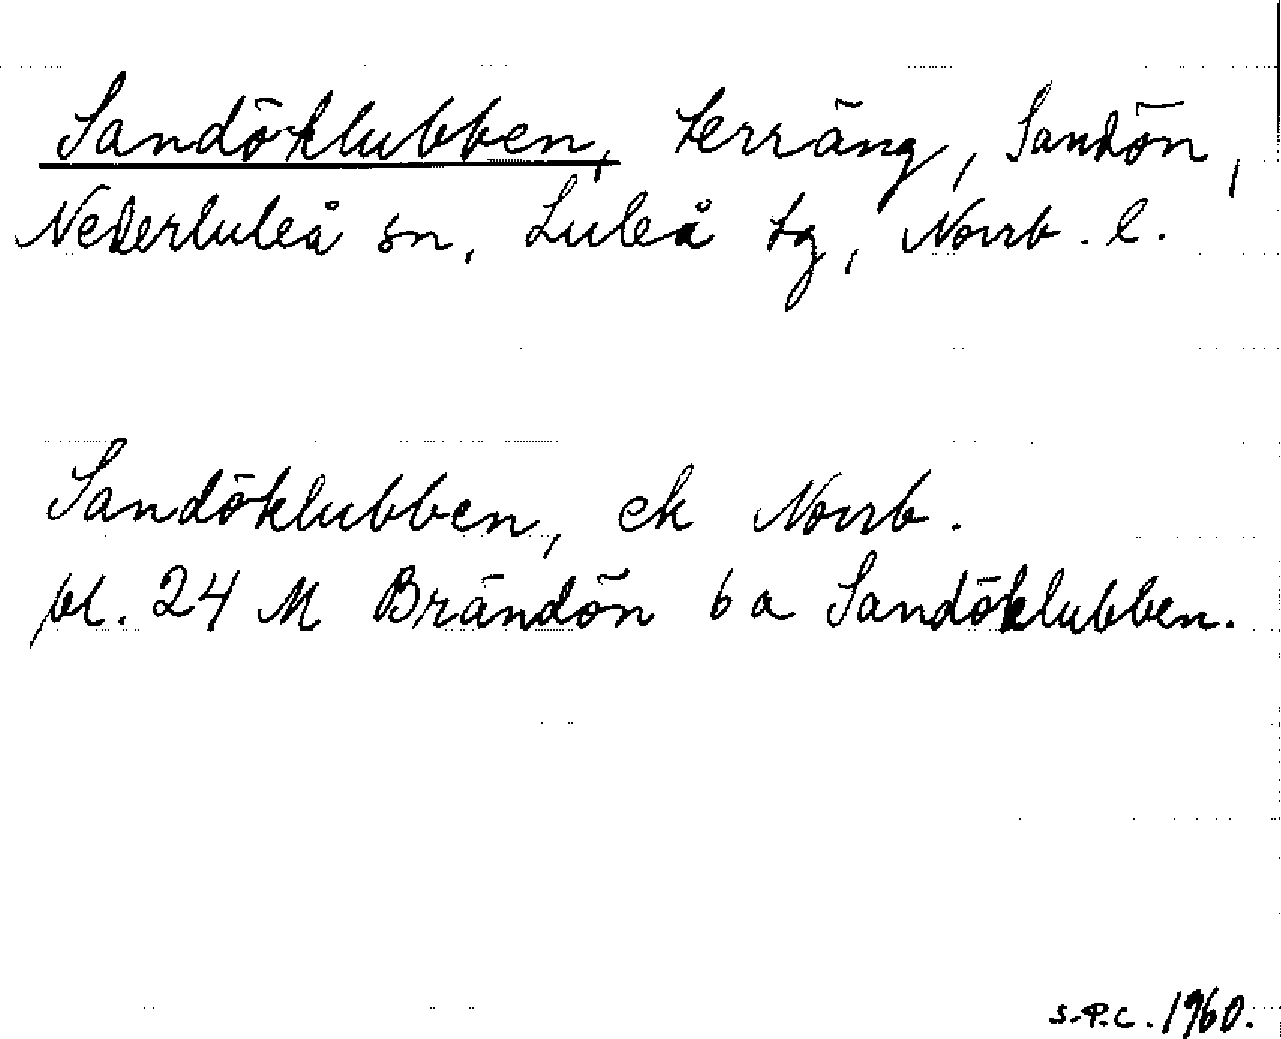 Sandöklubben, terräng, Sandön,
Nederluleå sn, Luleå tg, Norrb. l.
Sandöklubben, ek Norrb.
bl. 24 M Brändön 6 a Sandöklubben.
S.P.C. 1960.